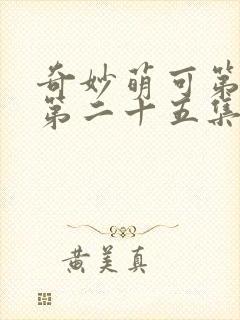 奇妙萌可第
第二十五集
黄美真